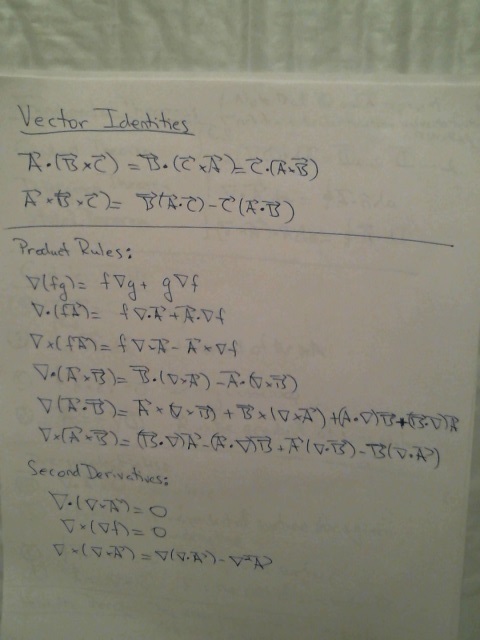 Vector Identities
A⃗·(B⃗×C⃗) = B⃗·(C⃗×A⃗) = C⃗·(A⃗×B⃗)
A⃗×(B⃗×C⃗) = B⃗(A⃗·C⃗) - C⃗(A⃗·B⃗)
Product Rules:
∇(fg) = f∇g + g∇f
∇·(fA⃗) = f∇·A⃗ + A⃗·∇f
∇×(fA⃗) = f∇×A⃗ - A⃗×∇f
∇·(A⃗×B⃗) = B⃗·(∇×A⃗) - A⃗·(∇×B⃗)
∇(A⃗·B⃗) = A⃗×(∇×B⃗) + B⃗×(∇×A⃗) + (A⃗·∇)B⃗ + (B⃗·∇)A⃗
∇×(A⃗×B⃗) = (B⃗·∇)A⃗ - (A⃗·∇)B⃗ + A⃗(∇·B⃗) - B⃗(∇·A⃗)
Second Derivatives:
∇·(∇×A⃗) = 0
∇×(∇f) = 0
∇×(∇×A⃗) = ∇(∇·A⃗) - ∇²A⃗